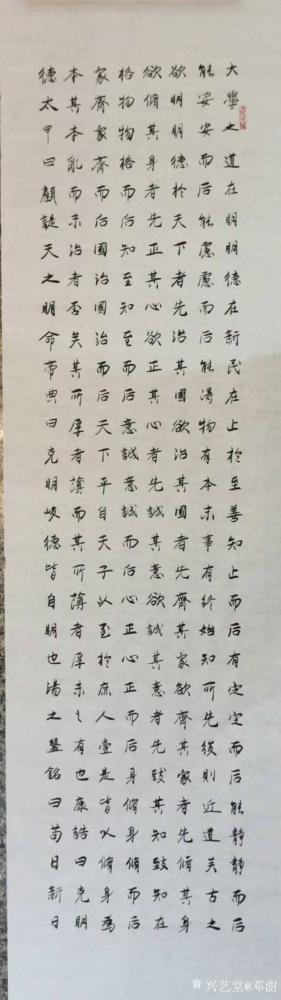 大學之道在明明德在新民在止於至善知止而后有定定而后能靜靜而后
能安安而后能慮慮而后能得物有本末事有終始知所先後則近道矣古之
欲明明德於天下者先治其國欲治其國者先齊其家欲齊其家者先脩其身
欲脩其身者先正其心欲正其心者先誠其意欲誠其意者先致其知致知在
格物物格而后知至知至而后意誠意誠而后心正心正而后身脩身脩而后
家齊家齊而后國治國治而后天下平自天子以至於庶人壹是皆以脩身為
本其本亂而末治者否矣其所厚者薄而其所薄者厚未之有也康誥曰克明
德太甲曰顧諟天之明命帝典曰克明峻德皆自明也湯之盤銘曰苟日新日
兴艺堂@邓澍